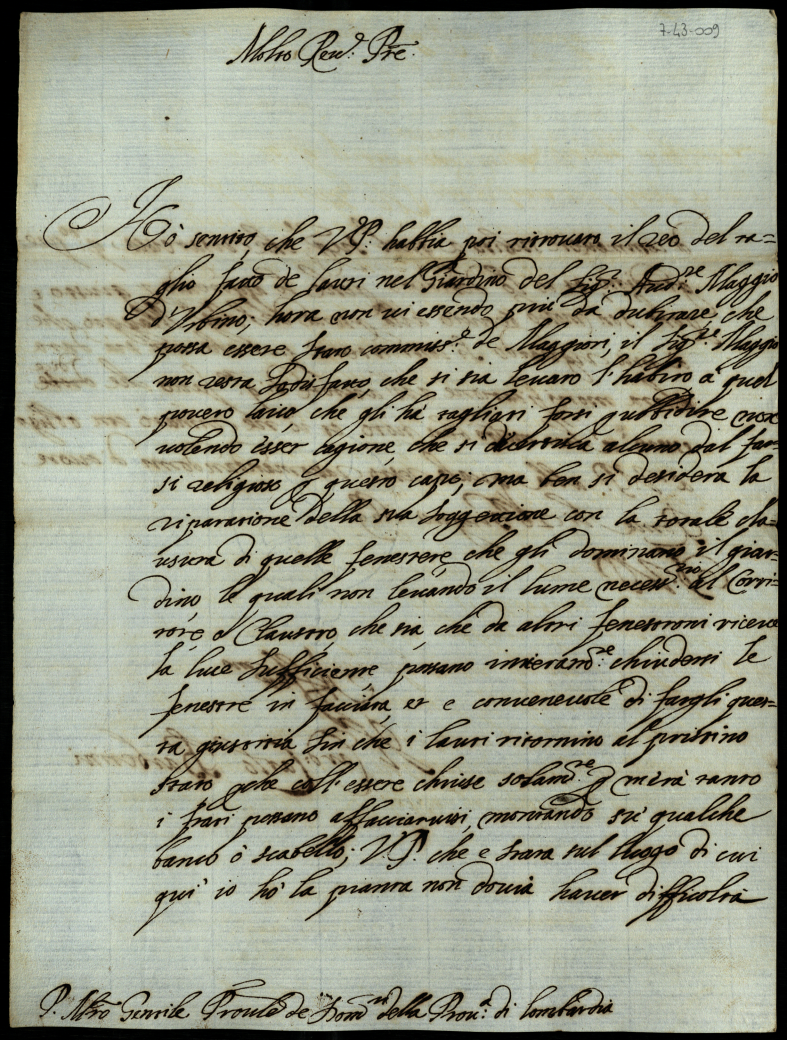 7-43-009
Molto Rev.do P're
Hò sentito che V.P. habbia poi ritrovato il reo del ta=
glio fatto de lauri nel Giardino del Sig.r And.re Maggio
d'Urbino; hora non vi essendo più da dubitare che
possa essere stato commiss.e de Maggiori, il Sig.re Maggio
non resta sodisfatto, che si sia levato l'habito a quel
povero laico che gli hà tagliati forsi p ubbidire non
volendo esser cagione, che si alcuno dal far=
si religioso p questo capo; ma ben si desidera la
riparatione della sua soggettione con la totale clau=
usura di quelle fenestre, che gli dominano il giar=
dino le quali non levando il lume necess.rio al Corri=
tore ò Claustro, che sia, che da altri fenestroni riceve
la luce sufficiente, possano interam.te chiudersi le
fenestre in facciata et e convenevole di fargli ques=
ta giustitia sin che i lauri ritornino al pristino
stato pche coll'essere chiuse solam.te p metà tanto
i frati possano affacciarvisi montando sù qualche
banco ò scabello; V.P. che e stata sul luogo di cui
quì io hò la pianta non dovrà haver difficoltà
P. M'ro Gentile Prou'le de della Prou.a di lombardia